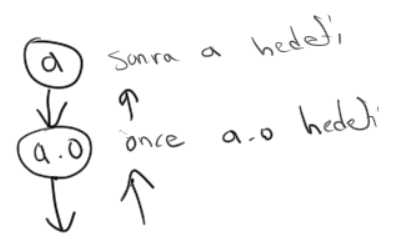 a sonra a hedefi
a.o önce a.o hedefi